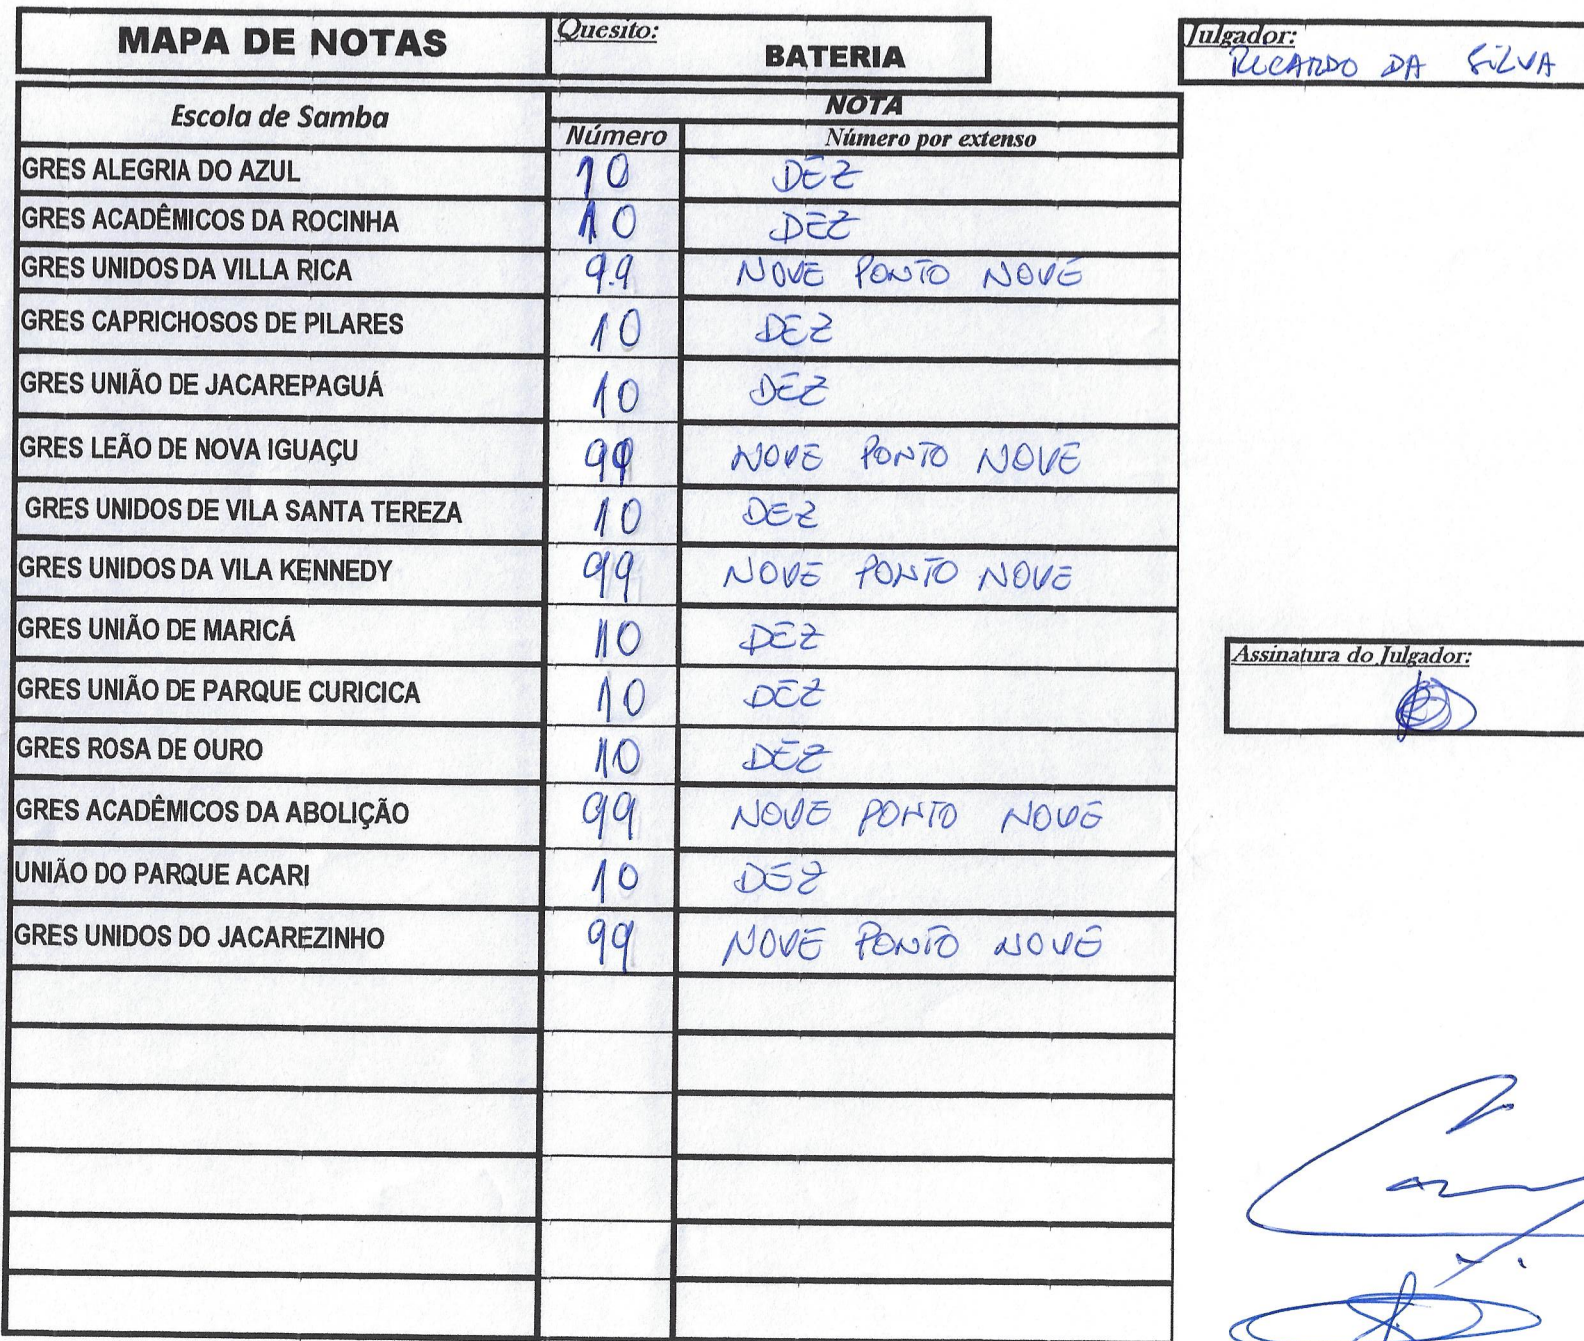 MAPA DE NOTAS Quesito: BATERIA Julgador: RICARDO DA SILVA
Escola de Samba NOTA
Número Número por extenso
GRES ALEGRIA DO AZUL 10 DEZ
GRES ACADÊMICOS DA ROCINHA 10 DEZ
GRES UNIDOS DA VILLA RICA 9.9 NOVE PONTO NOVE
GRES CAPRICHOSOS DE PILARES 10 DEZ
GRES UNIÃO DE JACAREPAGUÁ 10 DEZ
GRES LEÃO DE NOVA IGUAÇU 99 NOVE PONTO NOVE
GRES UNIDOS DE VILA SANTA TEREZA 10 DEZ
GRES UNIDOS DA VILA KENNEDY 99 NOVE PONTO NOVE
GRES UNIÃO DE MARICÁ 10 DEZ
Assinatura do Julgador:
GRES UNIÃO DE PARQUE CURICICA 10 DEZ
GRES ROSA DE OURO 10 DEZ
GRES ACADÊMICOS DA ABOLIÇÃO 99 NOVE PONTO NOVE
UNIÃO DO PARQUE ACARI 10 DEZ
GRES UNIDOS DO JACAREZINHO 99 NOVE PONTO NOVE